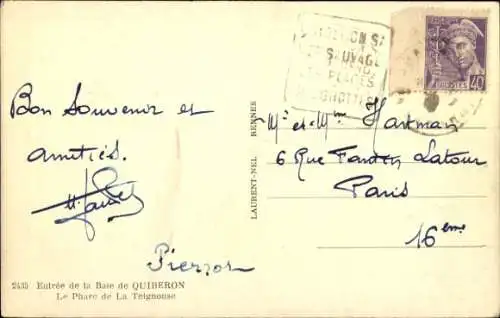 Bon Souvenir et
amitiés.
Pierzor
2435 Entrée de la Baie de QUIBERON
Le Phare de La Teignouse
LAURENT-NEL RENNES
SAUVAGE
PLAGES
40
Mr et Mme Hartman
6 Rue Fantin Latour
Paris
16ème